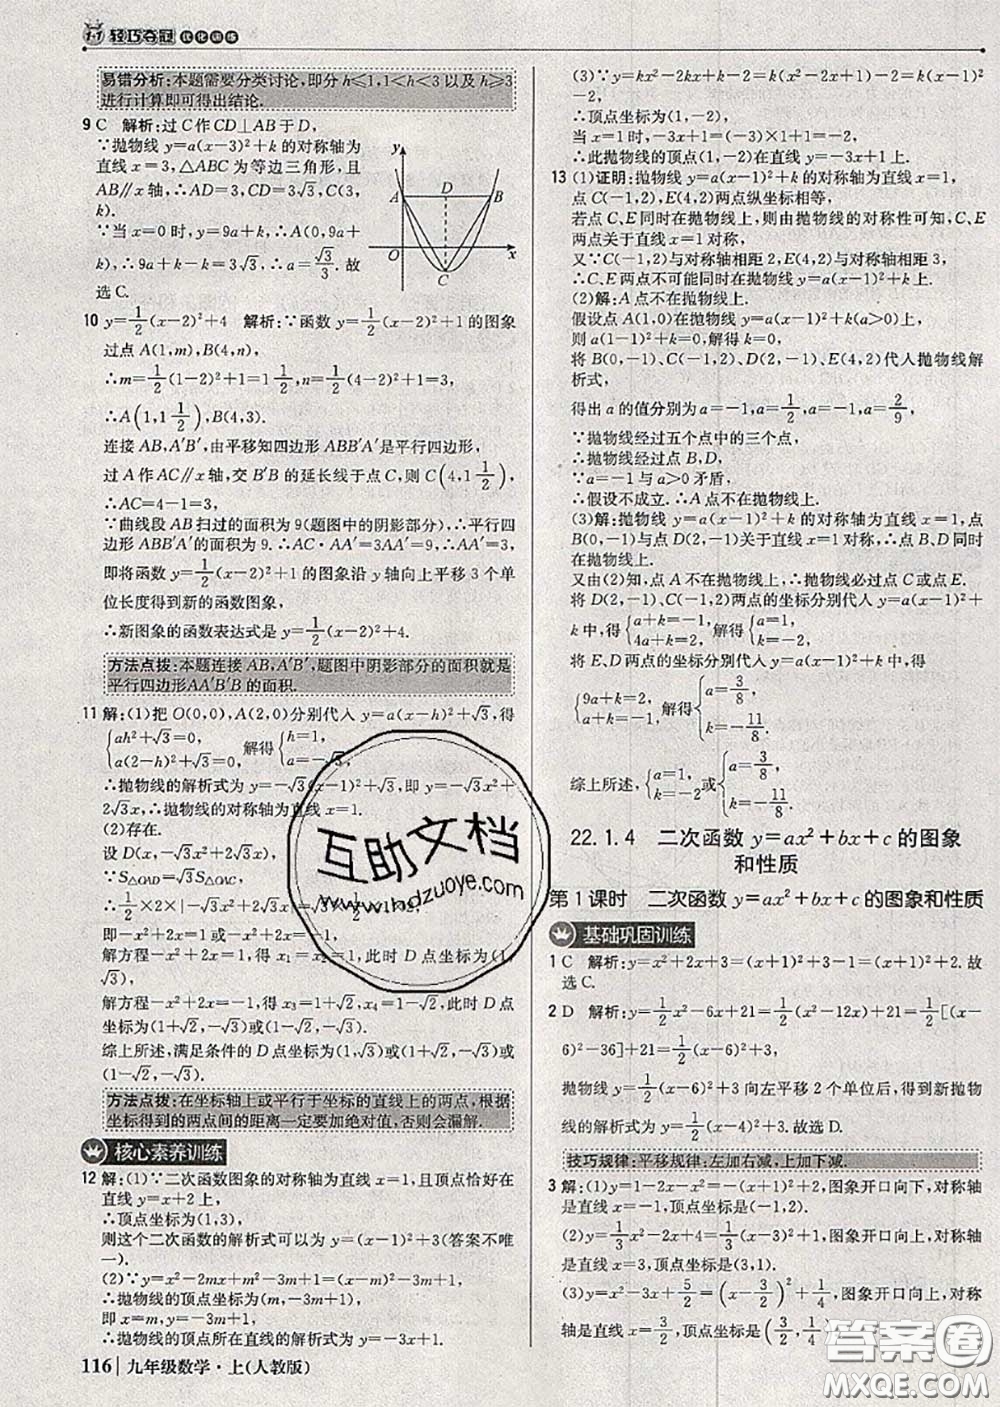 1+1 轻巧夺冠 优化训练
易错分析:本题需要分类讨论,即分 h≤1,1<h<3 以及 h≥3
进行计算即可得出结论.
9 C 解析:过 C 作 CD⊥AB 于 D,
∵抛物线 y=a(x-3)²+k 的对称轴为
直线 x=3,△ABC 为等边三角形,且
AB∥x 轴,∴AD=3,CD=3√3,C(3,
k).
∵当 x=0 时,y=9a+k,∴A(0,9a+
k),∴9a+k-k=3√3,∴a=√3/3.故
选 C.
y A D B O C x
10 y=1/2(x-2)²+4 解析:∵函数 y=1/2(x-2)²+1 的图象
过点 A(1,m),B(4,n),
∴m=1/2(1-2)²+1=1 1/2,n=1/2(4-2)²+1=3,
∴A(1,1 1/2),B(4,3).
连接 AB,A′B′,由平移知四边形 ABB′A′是平行四边形,
过 A 作 AC∥x 轴,交 B′B 的延长线于点 C,则 C(4,1 1/2),
∴AC=4-1=3,
∵曲线段 AB 扫过的面积为 9(题图中的阴影部分),∴平行四
边形 ABB′A′的面积为 9.∴AC·AA′=3AA′=9,∴AA′=3,
即将函数 y=1/2(x-2)²+1 的图象沿 y 轴向上平移 3 个单
位长度得到新的函数图象,
∴新图象的函数表达式是 y=1/2(x-2)²+4.
方法点拨:本题连接 AB,A′B′,题图中阴影部分的面积就是
平行四边形AA′B′B 的面积.
11 解:(1)把 O(0,0),A(2,0)分别代入 y=a(x-h)²+√3,得
{ah²+√3=0, a(2-h)²+√3=0, 解得{h=1, a=-√3,
∴抛物线的解析式为 y=-√3(x-1)²+√3,即 y=-√3x²+
2√3x,∴抛物线的对称轴为直线 x=1.
(2)存在.
设 D(x,-√3x²+2√3x),
∵S△OAD=√3S
∴1/2×2×|-√3x²+2√3x|=
即-x²+2x=1 或-x²+2x=-1.
解方程-x²+2x=1,得 x₁=x₂=1,此时 D 点坐标为(1,
√3),
解方程-x²+2x=-1,得 x₃=1+√2,x₄=1-√2,此时 D 点
坐标为(1+√2,-√3)或(1-√2,-√3).
综上所述,满足条件的 D 点坐标为(1,√3)或(1+√2,-√3)或
(1-√2,-√3).
方法点拨:在坐标轴上或平行于坐标的直线上的两点,根据
坐标得到的两点间的距离一定要加绝对值,否则会漏解.
核心素养训练
12 解:(1)∵二次函数图象的对称轴为直线 x=1,且顶点恰好在
直线 y=x+2 上,
∴顶点坐标为(1,3),
则这个二次函数的解析式可以为 y=(x-1)²+3(答案不唯
一).
(2)∵y=x²-2mx+m²-3m+1=(x-m)²-3m+1,
∴抛物线的顶点坐标为(m,-3m+1),
即 x=m,y=-3m+1,
∴抛物线的顶点所在直线的解析式为 y=-3x+1.
(3)∵y=kx²-2kx+k-2=k(x²-2x+1)-2=k(x-1)²
-2,
∴顶点坐标为(1,-2).
当 x=1 时,-3x+1=(-3)×1+1=-2,
∴此抛物线的顶点(1,-2)在直线 y=-3x+1 上.
13 (1)证明:抛物线 y=a(x-1)²+k 的对称轴为直线 x=1,
点 C(-1,2),E(4,2)两点纵坐标相等,
若点 C、E 同时在抛物线上,则由抛物线的对称性可知,C、E
两点关于直线 x=1 对称,
又∵C(-1,2)与对称轴相距 2,E(4,2)与对称轴相距 3,
∴C、E 两点不可能同时在抛物线 y=a(x-1)²+k 上.
(2)解:A 点不在抛物线上.
假设点 A(1,0)在抛物线 y=a(x-1)²+k(a>0)上,
则 a(1-1)²+k=0,解得 k=0,
将 B(0,-1)、C(-1,2)、D(2,-1)、E(4,2)代入抛物线解
析式,
得出 a 的值分别为 a=-1,a=1/2,a=-1,a=2/9,
∵抛物线经过五个点中的三个点,
∴抛物线经过点 B,D,
∵a=-1 与 a>0 矛盾,
∴假设不成立.∴A 点不在抛物线上.
(3)解:抛物线 y=a(x-1)²+k 的对称轴为直线 x=1,点
B(0,-1)与点 D(2,-1)关于直线 x=1 对称,∴点 B、D 同时
在抛物线上.
又由(2)知,点 A 不在抛物线上,∴抛物线必过点 C 或点 E.
将 D(2,-1)、C(-1,2)两点的坐标分别代入 y=a(x-1)²+
k 中,得{a+k=-1, 4a+k=2, 解得{a=1, k=-2;
将 E、D 两点的坐标分别代入 y=a(x-1)²+k 中,得
{9a+k=2, a+k=-1, 解得{a=3/8, k=-11/8.
综上所述,{a=1, k=-2 或{a=3/8, k=-11/8.
22.1.4 二次函数 y=ax²+bx+c 的图象
和性质
第 1 课时 二次函数 y=ax²+bx+c 的图象和性质
基础巩固训练
1 C 解析:y=x²+2x+3=(x+1)²+3-1=(x+1)²+2.故
选 C.
2 D 解析:y=1/2x²-6x+21=1/2(x²-12x)+21=1/2[(x-
6)²-36]+21=1/2(x-6)²+3,
抛物线 y=1/2(x-6)²+3 向左平移 2 个单位后,得到新抛物
线的解析式为 y=1/2(x-4)²+3.故选 D.
技巧规律:平移规律:左加右减,上加下减.
3 解:(1)y=1-2x-x²=-(x+1)²+2,图象开口向下,对称轴
是直线 x=-1,顶点坐标是(-1,2).
(2)y=1/3x²-2x+4=1/3(x-3)²+1,图象开口向上,对称轴
是直线 x=3,顶点坐标是(3,1).
(3)y=x²-3x+5/2=(x-3/2)²+1/4,图象开口向上,对称
轴是直线 x=3/2,顶点坐标是(3/2,1/4).
116 九年级数学·上(人教版)
互助文档
www.hdzuoye.com
答案圈
MXQE.COM